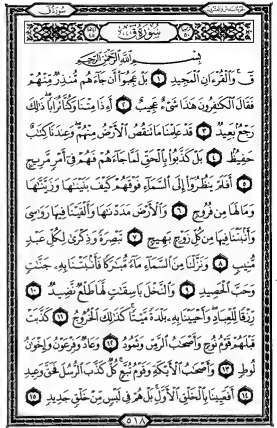 سُورَةُ قٓ
بِسْمِ اللَّهِ الرَّحْمَٰنِ الرَّحِيمِ
قٓ وَالْقُرْءَانِ الْمَجِيدِ ١ بَلْ عَجِبُوٓا۟ أَن جَآءَهُم مُّنذِرٌ مِّنْهُمْ
فَقَالَ الْكَٰفِرُونَ هَٰذَا شَىْءٌ عَجِيبٌ ٢ أَءِذَا مِتْنَا وَكُنَّا تُرَابًا ذَٰلِكَ
رَجْعٌۢ بَعِيدٌ ٣ قَدْ عَلِمْنَا مَا تَنقُصُ الْأَرْضُ مِنْهُمْ وَعِندَنَا كِتَٰبٌ
حَفِيظٌۢ ٤ بَلْ كَذَّبُوا۟ بِالْحَقِّ لَمَّا جَآءَهُمْ فَهُمْ فِىٓ أَمْرٍ مَّرِيجٍ
٥ أَفَلَمْ يَنظُرُوٓا۟ إِلَى السَّمَآءِ فَوْقَهُمْ كَيْفَ بَنَيْنَٰهَا وَزَيَّنَّٰهَا
وَمَا لَهَا مِن فُرُوجٍ ٦ وَالْأَرْضَ مَدَدْنَٰهَا وَأَلْقَيْنَا فِيهَا رَوَٰسِىَ
وَأَنۢبَتْنَا فِيهَا مِن كُلِّ زَوْجٍۭ بَهِيجٍ ٧ تَبْصِرَةً وَذِكْرَىٰ لِكُلِّ عَبْدٍ
مُّنِيبٍ ٨ وَنَزَّلْنَا مِنَ السَّمَآءِ مَآءً مُّبَٰرَكًا فَأَنۢبَتْنَا بِهِۦ جَنَّٰتٍ
وَحَبَّ الْحَصِيدِ ٩ وَالنَّخْلَ بَاسِقَٰتٍ لَّهَا طَلْعٌ نَّضِيدٌ ١٠
رِّزْقًا لِّلْعِبَادِ وَأَحْيَيْنَا بِهِۦ بَلْدَةً مَّيْتًا كَذَٰلِكَ الْخُرُوجُ ١١ كَذَّبَتْ
قَبْلَهُمْ قَوْمُ نُوحٍ وَأَصْحَٰبُ الرَّسِّ وَثَمُودُ ١٢ وَعَادٌ وَفِرْعَوْنُ وَإِخْوَٰنُ
لُوطٍ ١٣ وَأَصْحَٰبُ الْأَيْكَةِ وَقَوْمُ تُبَّعٍ كُلٌّ كَذَّبَ الرُّسُلَ فَحَقَّ وَعِيدِ
١٤ أَفَعَيِينَا بِالْخَلْقِ الْأَوَّلِ بَلْ هُمْ فِى لَبْسٍ مِّنْ خَلْقٍ جَدِيدٍ ١٥
٥١٨